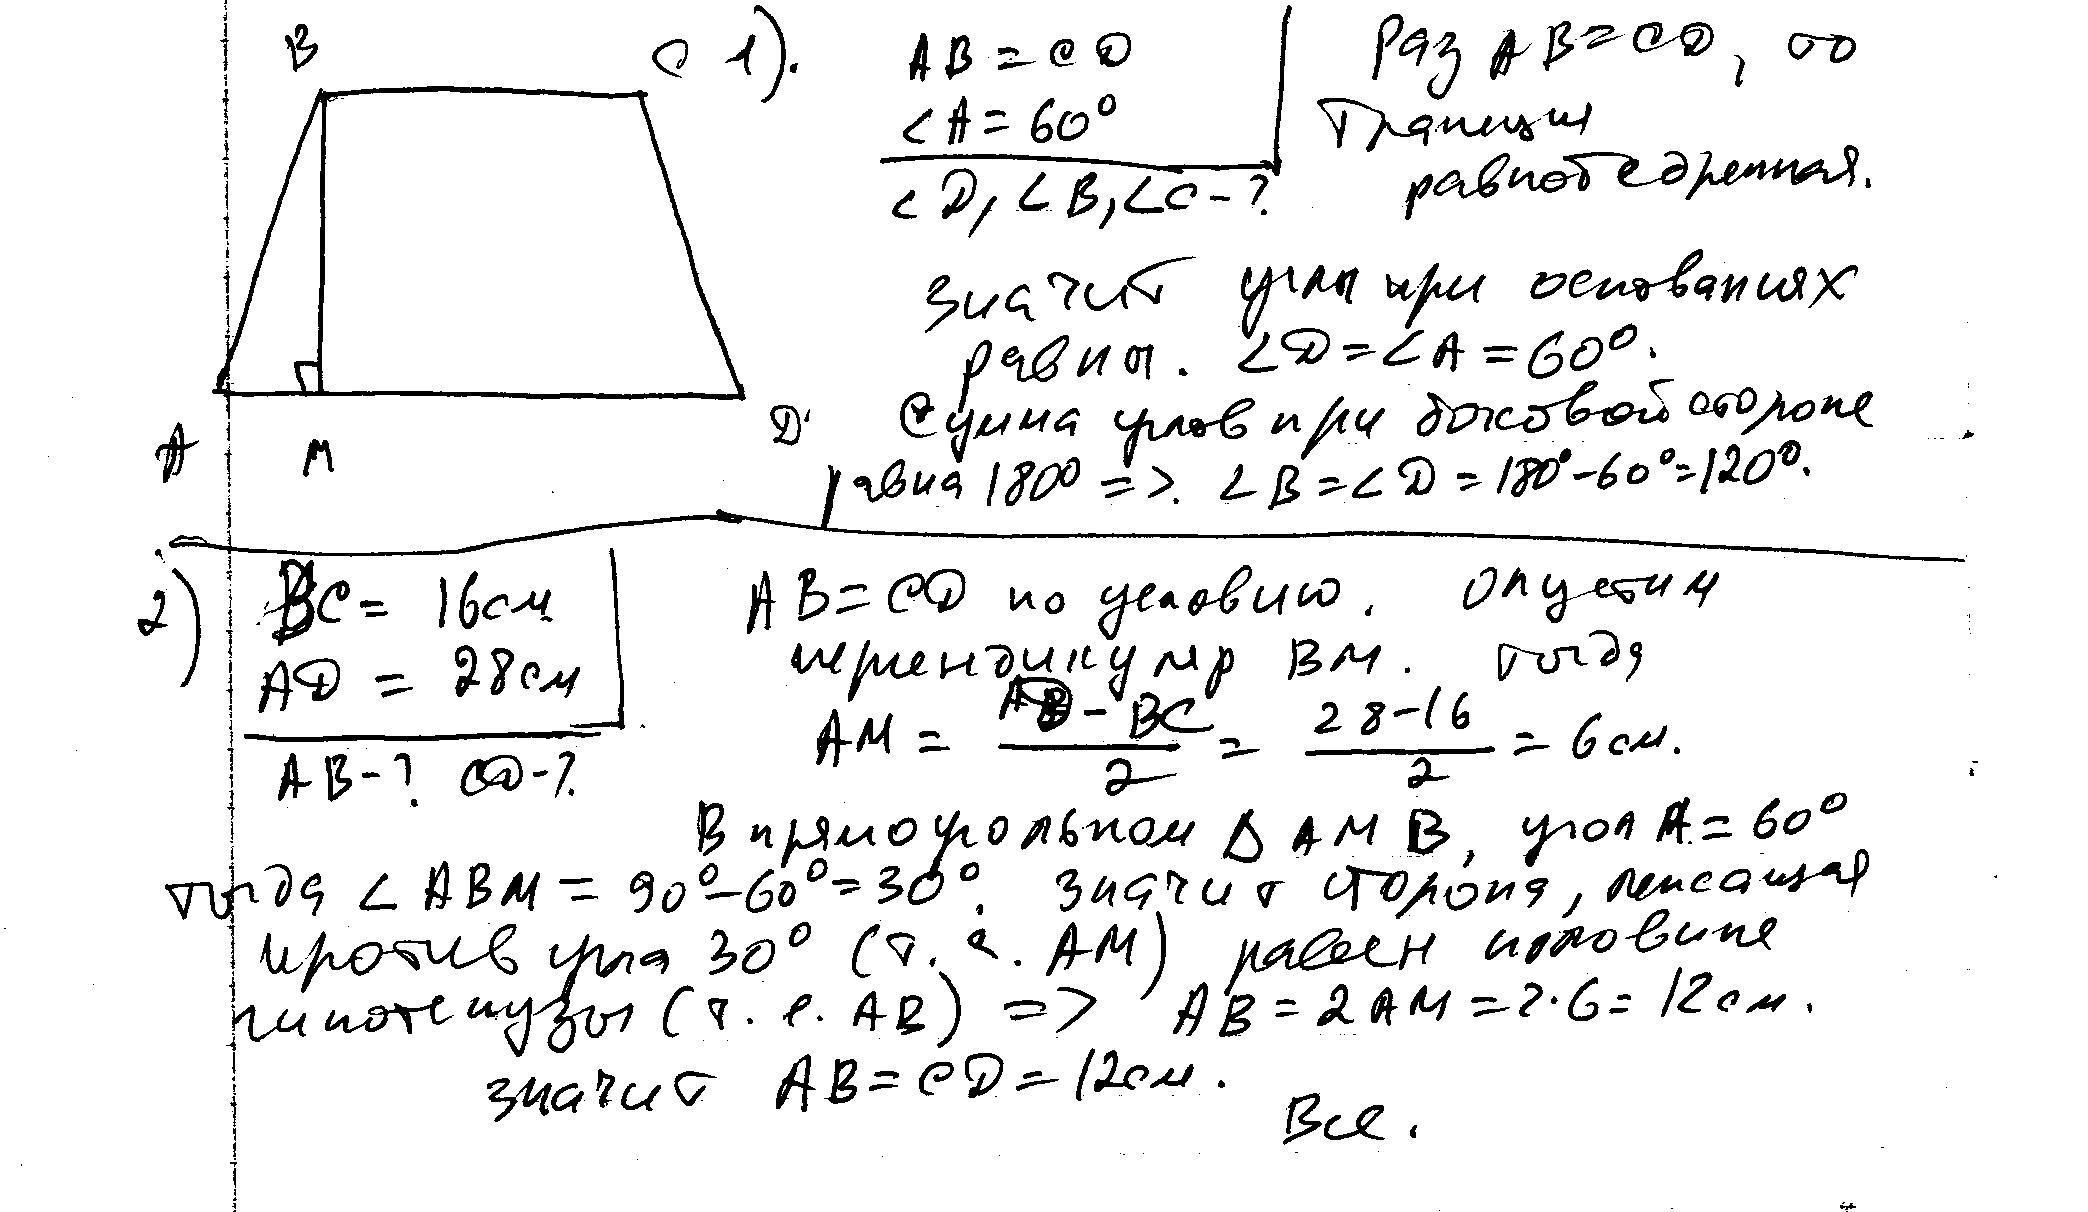 B
C
A
M
D
1).
AB = CD
∠A = 60°
∠D, ∠B, ∠C - ?
Раз AB = CD, то
трапеция
равнобедренная.
значит углы при основаниях
равны. ∠D = ∠A = 60°.
Сумма углов при боковой стороне
равна 180° => ∠B = ∠D = 180° - 60° = 120°.
2)
BC = 16 см
AD = 28 см
AB - ? CD - ?
AB = CD по условию. Опустим
перпендикуляр BM. тогда
AM = (AD - BC)/2 = (28 - 16)/2 = 6 см.
В прямоугольном Δ AMB, угол A = 60°
тогда ∠ABM = 90° - 60° = 30°. значит сторона, лежащая
против угла 30° (т. е. AM) равен половине
гипотенузы (т. е. AB) => AB = 2AM = 2·6 = 12 см.
значит AB = CD = 12 см.
Все.